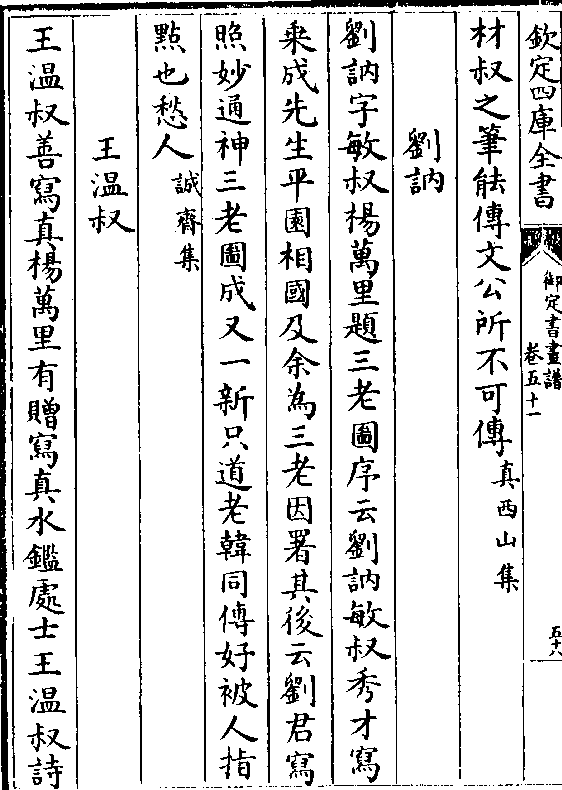 欽定四庫全書
御定書畫譜
卷五十一
五十八
材叔之筆能傳文公所不可傳真西山集
劉訥
劉訥字敏叔楊萬里題三老圖序云劉訥敏叔秀才寫
乘成先生平園相國及余為三老因署其後云劉君寫
照妙通神三老圖成又一新只道老韓同傳好被人指
點也愁人誠齋集
王温叔
王温叔善寫真楊萬里有贈寫真水鑑處士王温叔詩